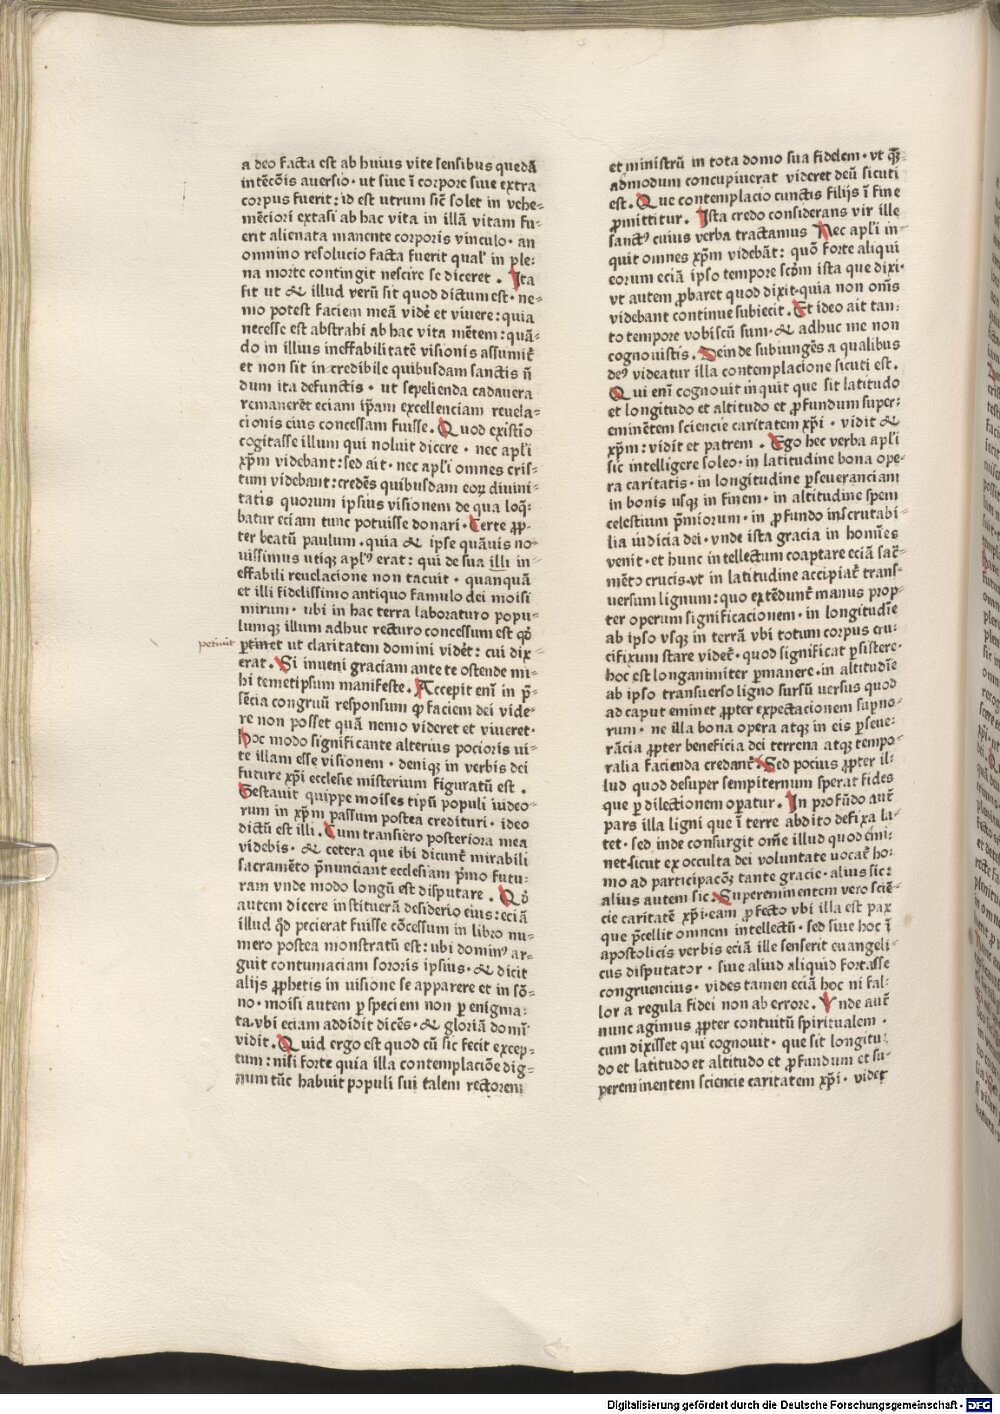 a deo facta est ab huius vite sensibus quedā
intēcōis auersio · ut siue ī corpore siue extra
corpus fuerit: id est utrum sic̄ solet in vehe⸗
mēciori extasi ab hac vita in illā vitam fu⸗
erit alienata manente corporis vinculo · an
omnino resolucio facta fuerit qual' in ple⸗
na morte contingit nescire se diceret . Ita
fit ut & illud verū sit quod dictum est · ne⸗
mo potest faciem meā vider̄ et viuere: quia
necesse est abstrahi ab hac vita mētem: quā⸗
do in illius ineffabilitatē visionis assumit̄
et non sit incredibile quibusdam sanctis ñ
dum ita defunctis · ut sepelienda cadauera
remanerēt eciam ip̄am excellenciam reuela⸗
cionis eius concessam fuisse . Quod existīo
cogitasse illum qui noluit dicere · nec apl'i
xp̄m videbant: sed ait · nec apl'i omnes cris⸗
tum videbant: credēs quibusdam eoꝝ diuini⸗
tatis quorum ipsius visionem de qua loq̄⸗
batur eciam tunc potuisse donari . Certe ꝓp⸗
ter beatū paulum . quia & ipse quāuis no⸗
uissimus utiqꝫ apl'ꝰ erat: qui de sua illi in⸗
effabili reuelacione non tacuit · quanquā
et illi fidelissimo antiquo famulo dei moisi
mirum · ubi in hac terra laboraturo popu⸗
lumqꝫ illum adhuc recturo concessum est qō
petiuit ꝑtinet ut claritatem domini vider̄t: cui dix⸗
erat . Si inueni graciam ante te ostende mi⸗
hi temetipsum manifeste . Accepit eni̅ in p̄⸗
sēcia congruū responsum ꝙ faciem dei vide⸗
re non posset quā nemo videret et viueret ·
hoc modo significante alterius pocioris ui⸗
te illam esse visionem · deniqꝫ in verbis dei
future xp̄i ecclesie misterium figuratū est .
Gestauit quippe moises tipū populi iudeo⸗
rum in xp̄m passum postea credituri · ideo
dictū est illi . Cum transiero posteriora mea
videbis · & cetera que ibi dicunt̄ mirabili
sacramēto p̄nunciant ecclesiam p̄mo futu⸗
ram vnde modo longū est disputare . Qō
autem dicere instituerā desiderio eius: eciā
illud qd̄ pecierat fuisse cōcessum in libro nu⸗
mero postea monstratū est: ubi dominꝰ ar⸗
guit contumaciam sororis ipsius · & dicit
alijs ꝓphetis in uisione se apparere et in sō⸗
no · moisi autem ꝑ speciem non ꝑ enigma⸗
ta. vbi eciam addidit dicēs · & gloriā domī
vidit . Quid ergo est quod cū sic fecit excep⸗
tum: nisi forte quia illa contemplaciōe dig⸗
num tūc habuit populi sui talem rectorem
et ministrū in tota domo sua fidelem · vt qꝫ⸗
admodum concupiuerat videret deū sicuti
est . Que contemplacio cunctis filijs ī fine
ꝓmittitur . Ista credo considerans vir ille
sanctꝰ cuius verba tractamus Nec apl'i in⸗
quit omnes xp̄m videbāt: quō forte aliqui
eorum eciā ipso tempore scōm ista que dixi ·
vt autem ꝓbaret quod dixit · quia non om̄s
videbant continue subiecit . Et ideo ait tan⸗
to tempore vobiscū sum · & adhuc me non
cognouistis . Deinde subiungēs a qualibus
deꝰ videatur illa contemplacione sicuti est .
Qui eni̅ cognouit inquit que sit latitudo
et longitudo et altitudo et ꝓfundum super⸗
eminētem sciencie caritatem xp̄i · vidit &
xp̄m: vidit et patrem . Ego hec verba apl'i
sic intelligere soleo · in latitudine bona ope⸗
ra caritatis · in longitudine ꝑseueranciam
in bonis usqꝫ in finem · in altitudine spem
celestium p̄miorum · in ꝓfundo inscrutabi⸗
lia iudicia dei · vnde ista gracia in homi̅es
venit · et hunc intellectum coaptare eciā sac̄⸗
mēto crucis · vt in latitudine accipiat̄ trans⸗
uersum lignum: quo extēdunt̄ manus prop⸗
ter operum significacionem · in longitudi̅e
ab ipso vsqꝫ in terrā vbi totum corpus cru⸗
cifixum stare videt̄ · quod significat ꝑsistere ·
hoc est longanimiter ꝑmanere · in altitudi̅e
ab ipso transuerso ligno sursū uersus quod
ad caput eminet ꝓpter expectacionem supno⸗
rum · ne illa bona opera atqꝫ in eis ꝑseue⸗
rācia ꝓpter beneficia dei terrena atqꝫ tempo⸗
ralia facienda credant̄ . Sed pocius ꝓpter il⸗
lud quod desuper sempiternum sperat fides
que ꝑ dilectionem oꝑatur . In profūdo aut̄
pars illa ligni que ī terre abdito defixa la⸗
tet · sed inde consurgit om̄e illud quod emi⸗
net · sicut ex occulta dei voluntate uocat̄ ho⸗
mo ad participacōꝫ tante gracie · alius sic:
alius autem sic . Supereminentem vero sciē⸗
cie caritatē xp̄i · eam ꝓfecto vbi illa est pax
que p̄cellit omnem intellectū · sed siue hoc ī
apostolicis verbis eciā ille senserit euangeli⸗
cus disputator · siue aliud aliquid fortasse
congruencius · vides tamen eciā hoc ni fal⸗
lor a regula fidei non ab errore . Vnde aut̄
nunc agimus ꝓpter contuitū spiritualem ·
cum dixisset qui cognouit · que sit longitu⸗
do et latitudo et altitudo et ꝓfundum et su⸗
pereminentem sciencie caritatem xp̄i · videt
Digitalisierung gefördert durch die Deutsche Forschungsgemeinschaft - DFG